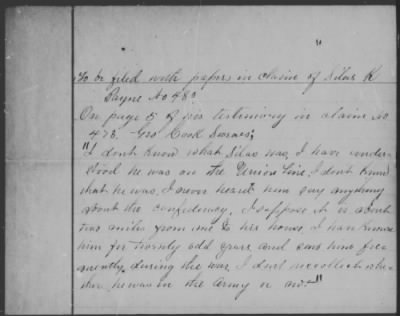 "
To be filed with papers in claim of Silas K
Payne No 483
On page 5 of his testimony in claim No
473. Geo Cook Swears;
"I dont know what Silas was, I have under-
stood he was on the Union line, I dont know
what he was. I never heard him say anything
about the confederacy. I suppose it is about
two miles from me to his house, I have known
him for twenty odd years and saw him fre-
quently, during the war, I dont recollect whe-
ther he was in the army or not."